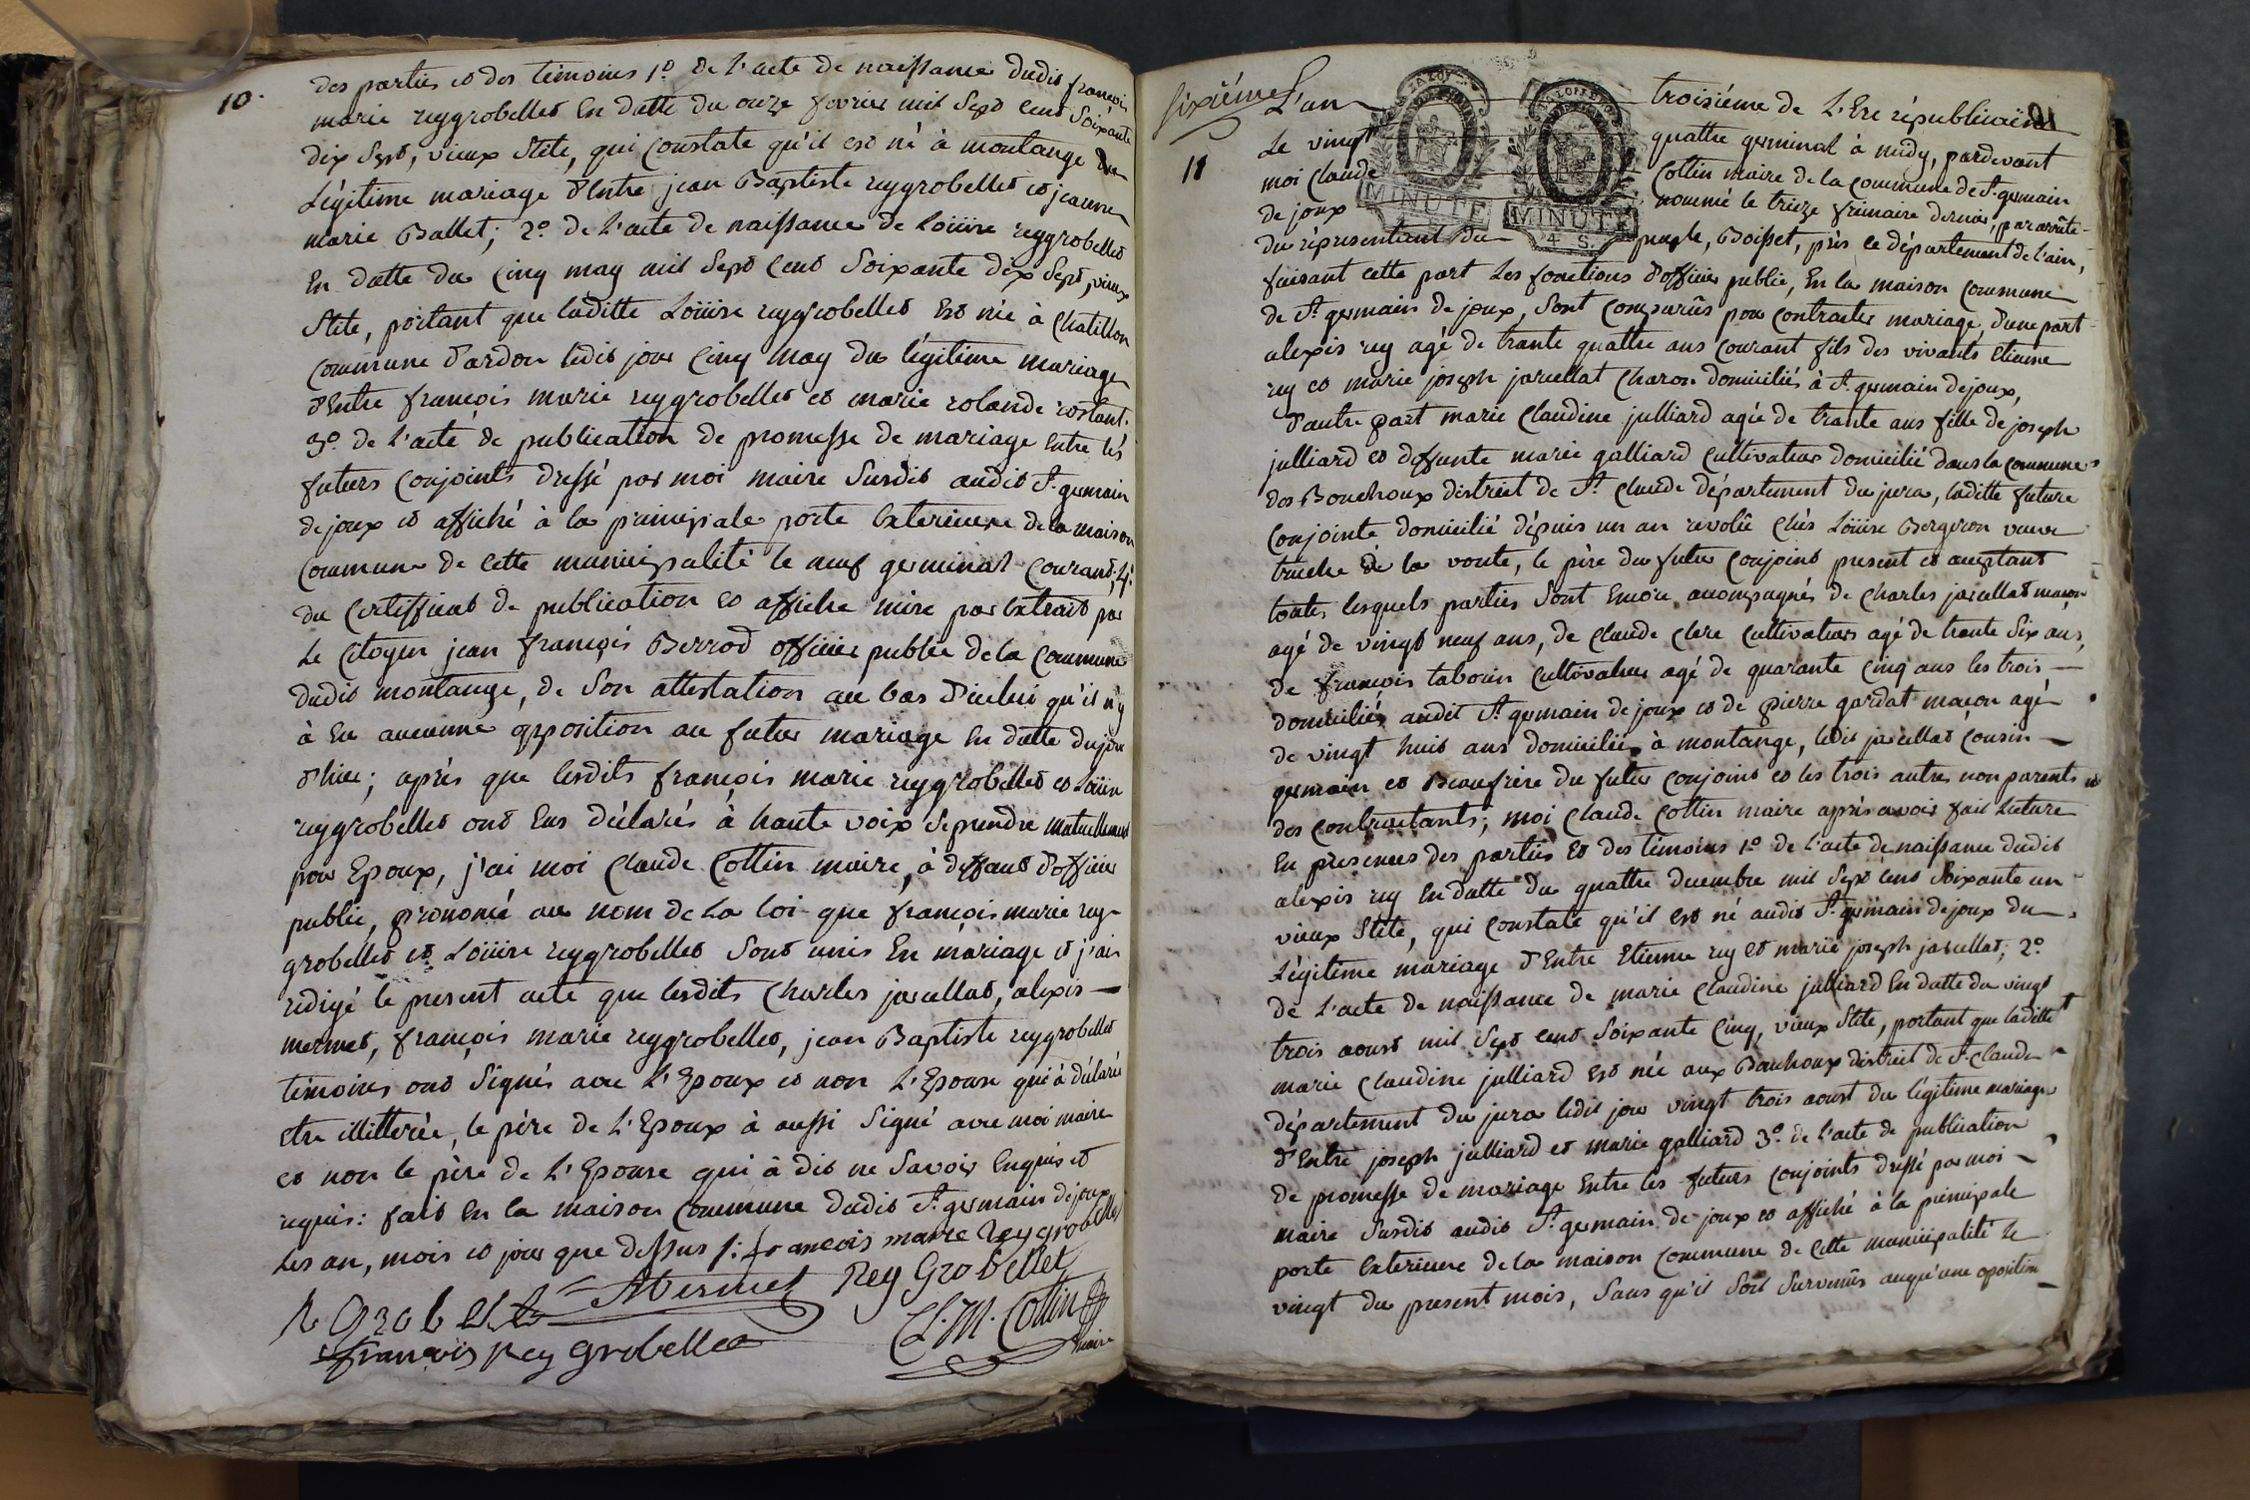 10.
des parties et des témoins 1º de l'acte de naissance dudit françois
marie reygrobellet En datte du onze fevrier mil Sept Cent Soixante
dix Sept, vieux Stile, qui Constate qu'il est né à montange du
Légitime mariage d'Entre jean Baptiste reygrobellet et jeanne
marie Ballet; 2º de l'acte de naissance de Loüise reygrobellet
En datte du Cinq may mil Sept Cent Soixante dix Sept, vieux
Stile, portant que laditte Loüise reygrobellet Est née à Chatillon
Commune d'ardon ledit jour Cinq may du légitime mariage
d'Entre françois marie reygrobellet et marie rolande rostant.
3º de l'acte de publication de promesse de mariage Entre les
futurs Conjoints dressé par moi maire Susdit audit St. germain
de joux et affiché à la principale porte Exterieure de la maison
Commune de Cette municipalité le neuf germinal Courant; 4º
du Certifficat de publication et affiche mise par Extrait par
Le Citoyen jean françois Berrod officier public de la Commune
dudit montange, de Son attestation au bas d'icelui qu'il n'y
à Eu aucunne opposition au futur mariage En datte du jour
d'hier; après que lesdits françois marie reygrobellet et Loüise
reygrobellet ont Eus déclarés à haute voix Se prendre mutuellement
pour Epoux, j'ai moi Claude Cottin maire, à deffaut d'officier
public, prononcé au nom de la loi que françois marie rey-
grobellet et Loüise reygrobellet Sont unis En mariage et j'ai
redigé le present acte que lesdits Charles jacellat, alexis
mermet, françois marie reygrobellet, jean Baptiste reygrobellet
témoins ont Signés avec L'Epoux et non L'Epouse qui à déclarée
etre illitterée, le père de L'Epoux à aussi Signé avec moi maire
et non le père de L'Epouse qui à dit ne Savoir Enquis et
requis: fait En la maison Commune dudit St. germain de joux
Les an, mois et jour que dessus /: francois marie Rey grobellet
AMermet Rey Grobellet
françois Rey Grobellet
C.M. Cottin
maire
Sixième
11
L'an troisiéme de L'Ere républicaine
Le vingt quattre germinal à midy, pardevant
moi Claude Cottin maire de la Commune de St. germain
de joux nommé le treize frimaire dernier, par arrêté
du réprésentant du peuple, Boisset, près le département de l'ain,
faisant cette part Les fonctions d'officier public, En la maison Commune
de St. germain de joux, Sont Comparûs pour Contracter mariage, d'une part
alexis rey agé de trante quattre ans Courant fils des vivants Etienne
rey et marie joseph jacellat Charon domiciliés à St. germain de joux,
d'autre part marie Claudine julliard agée de trante ans fille de joseph
julliard et deffunte marie galliard Cultivateur domicilié dans la Commune
des Bouchoux district de St. Claude département du jura, laditte future
Conjointe domicilié dépuis un an révolû chés Loüise Bergeron veuve
truche de la voute, le père du futur Conjoint present et acceptant
toutes lesquels parties Sont Encore accompagnés de Charles jacellat maçon
agé de vingt neuf ans, de Claude Clerc Cultivateur agé de trante Six ans,
de françois tabouin Cultivateur agé de quarante Cinq ans les trois
domiciliés audit St. germain de joux et de pierre gardat maçon agé
de vingt huit ans domiciliés à montange, ledit jacellat Cousin
germain et Beaufrère du futur Conjoint et les trois autres non parents
des Contractants; moi Claude Cottin maire après avoir fait Lecture
En présences des parties et des temoins 1º de l'acte de naissance dudit
alexis rey En datte du quattre decembre mil Sept cent Soixante un
vieux Stile, qui Constate qu'il est né audit St. germain de joux du
Légitime mariage d'Entre Etienne rey et marie joseph jacellat; 2º
de l'acte de naissance de marie Claudine julliard En datte du vingt
trois aoust mil Sept cent Soixante Cinq, vieux Stile, portant que laditte
marie Claudine julliard est née aux Bouchoux district de St. Claude
département du jura ledit jour vingt trois aoust du légitime mariage
d'Entre joseph julliard et marie galliard 3º de l'acte de publication
de promesse de mariage Entre les futurs Conjoints dressé par moi
maire Susdit audit St. germain de joux et affiché à la principale
porte Exterieure de la maison Commune de Cette municipalité le
vingt du present mois, Sans qu'il Soit Survenûs auqu'une oposition
MINUTE
MINUTE
4 S.